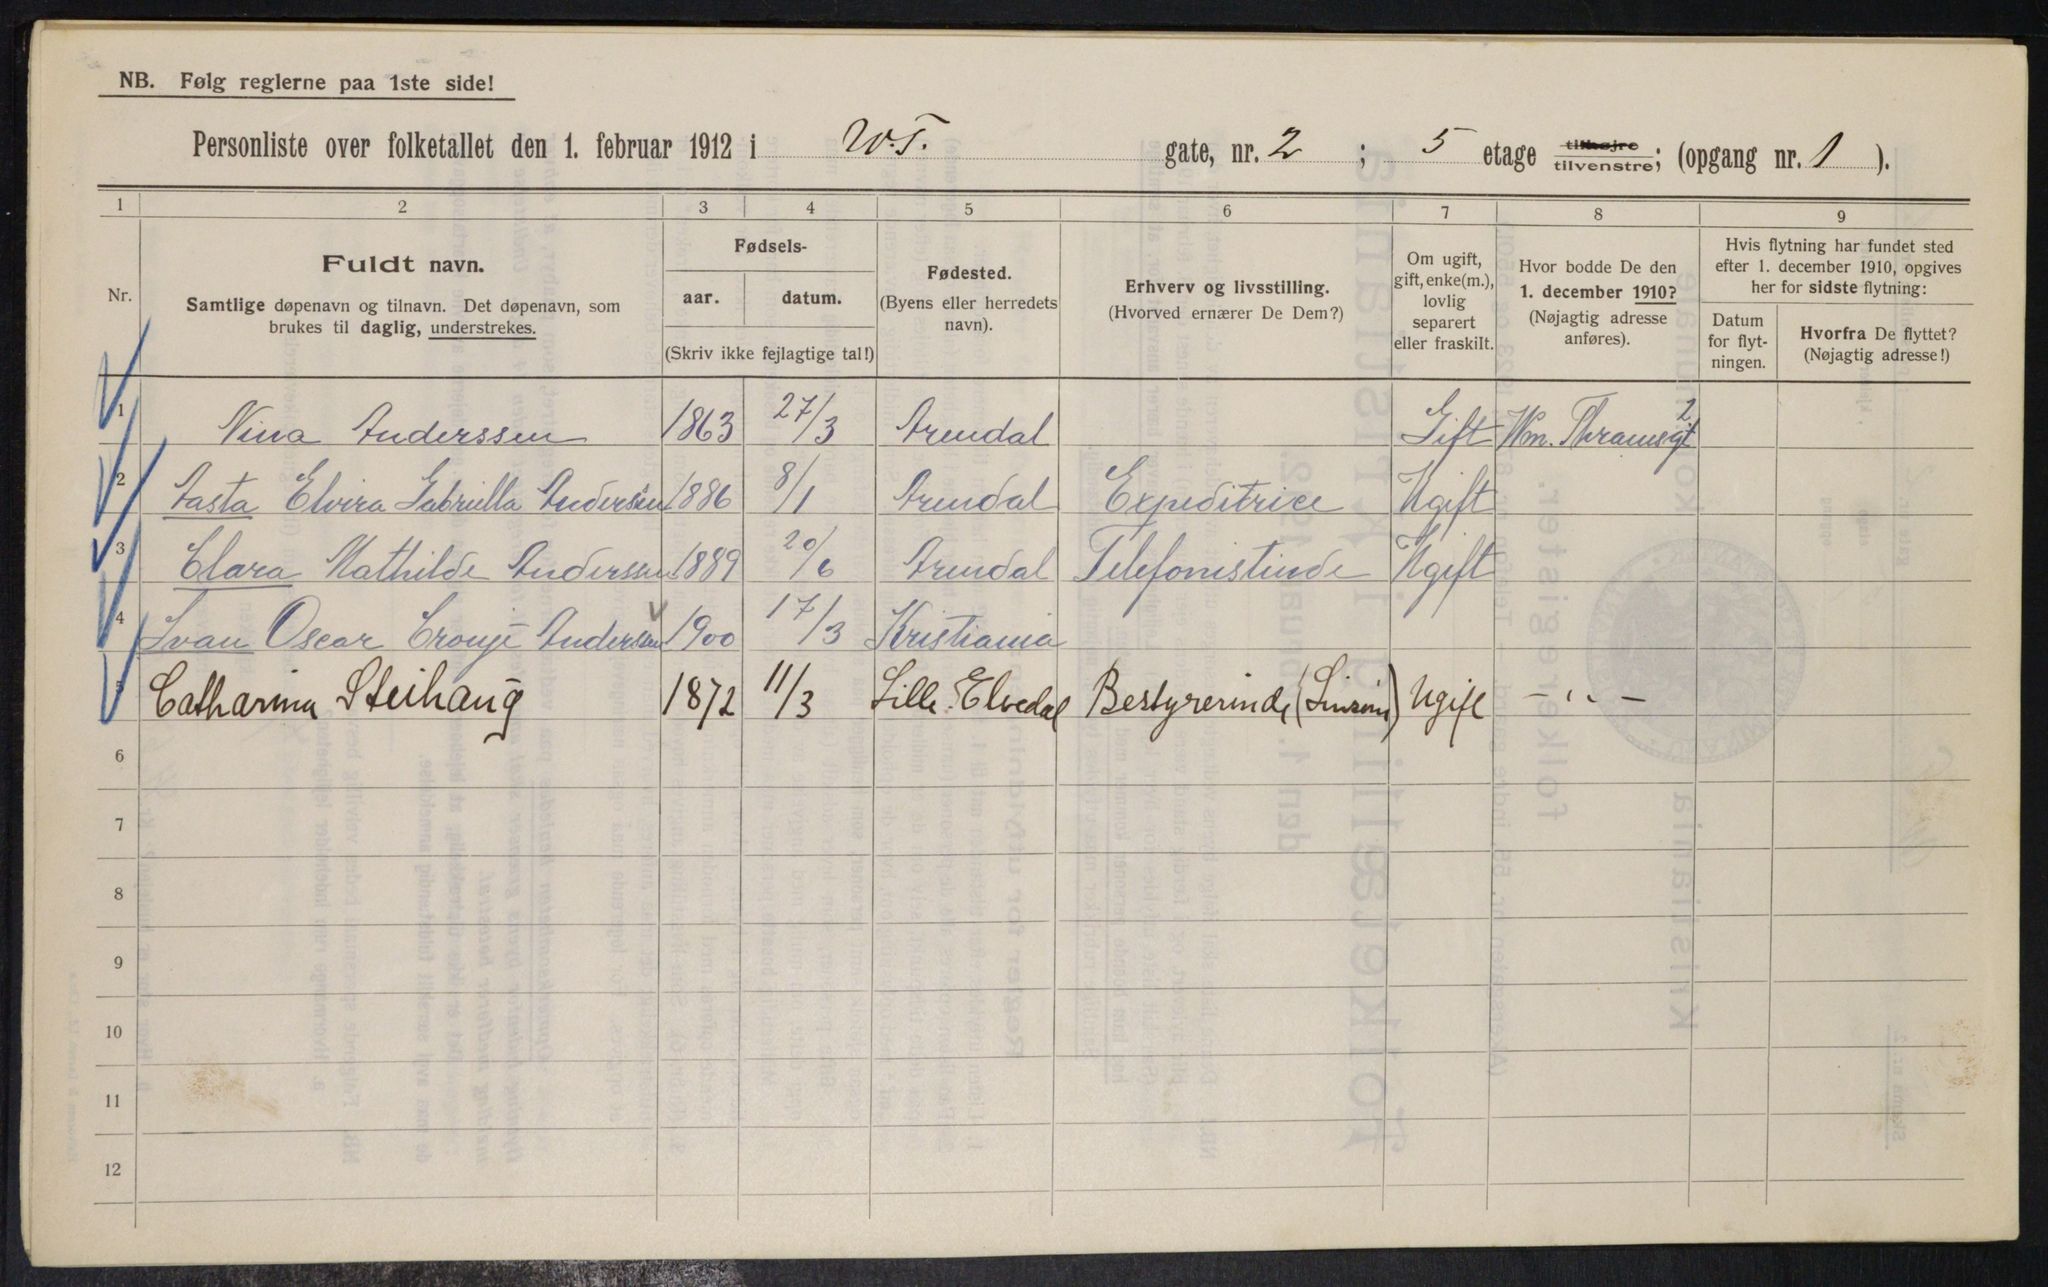 NB. Følg reglerne paa 1ste side!
Personliste over folketallet den 1. februar 1912 i W.T. gate, nr. 2 ; 5 etage tilhøjre tilvenstre; (opgang nr. 1 ).
1 2 3 4 5 6 7 8 9
Nr.
Fuldt navn.
Samtlige døpenavn og tilnavn. Det døpenavn, som
brukes til daglig, understrekes.
Fødsels-
aar. datum.
(Skriv ikke fejlagtige tal!)
Fødested.
(Byens eller herredets
navn).
Erhverv og livsstilling.
(Hvorved ernærer De Dem?)
Om ugift,
gift, enke(m.),
lovlig
separert
eller fraskilt.
Hvor bodde De den
1. december 1910?
(Nøjagtig adresse
anføres).
Hvis flytning har fundet sted
efter 1. december 1910, opgives
her for sidste flytning:
Datum
for flyt-
ningen.
Hvorfra De flyttet?
(Nøjagtig adresse!)
1 Nina Anderssen 1863 27/3 Arendal Gift Wm. Thranesgt 2
2 Aasta Elvira Gabriella Anderssen 1886 8/1 Arendal Expeditrice Ugift
3 Clara Mathilde Anderssen 1889 20/6 Arendal Telefonistinde Ugift
4 Ivan Oscar Cronje Anderssen 1900 17/3 Kristiania
5 Catharina Steihaug 1872 11/3 Lille Elvedal Bestyrerinde Ugift — " —
6
7
8
9
10
11
12